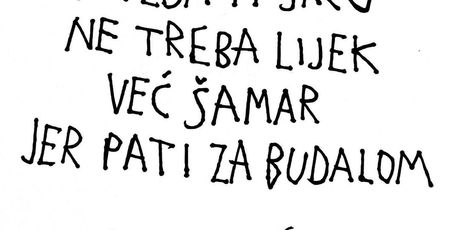 NE TREBA LIJEK
VEĆ ŠAMAR
JER PATI ZA BUDALOM